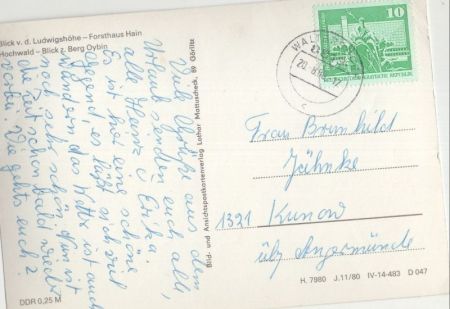 Blick v. d. Ludwigshöhe – Forsthaus Hain
Hochwald – Blick z. Berg Oybin
Viele Grüße aus dem
Urlaub senden euch alle,
alle Heinz Erika.
Es ist hier eine schöne
Gegend es läßt sich viel
wandern das Wetter ist auch
noch sehr schön. Nun ist
die Zeit schon bald wieder
vorbei. Wie gehts euch?
DDR 0,25 M
Bild- und Ansichtspostkartenverlag Lothar Mattuscheck, 89 Görlitz
10
DEUTSCHE DEMOKRATISCHE REPUBLIK
WAL
20.8.
c
Frau Brunhild
Jähnke
1321 Kunow
üb/ Angermünde
H. 7980 J.11/80 IV-14-483 D 047